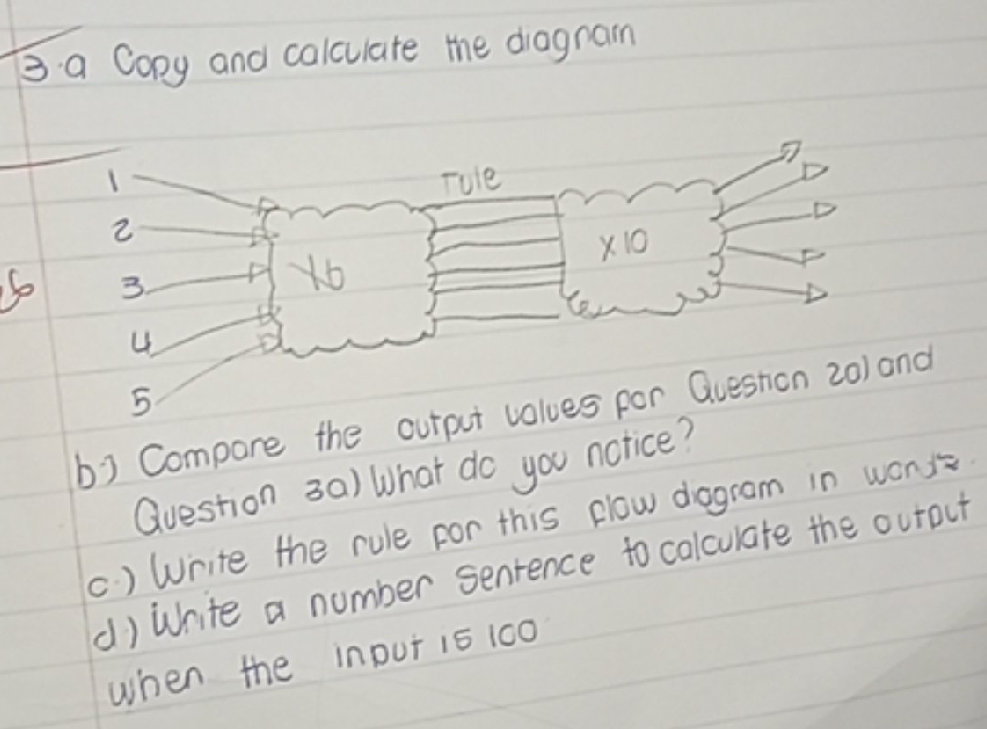 3.a Copy and calculate the diagram
rule
1
2
3
4
5
x6
x10
b.) Compare the output values for Question 2a) and
Question 3a) What do you notice?
c.) Write the rule for this flow diagram in words.
d) Write a number sentence to calculate the output
when the input is 100